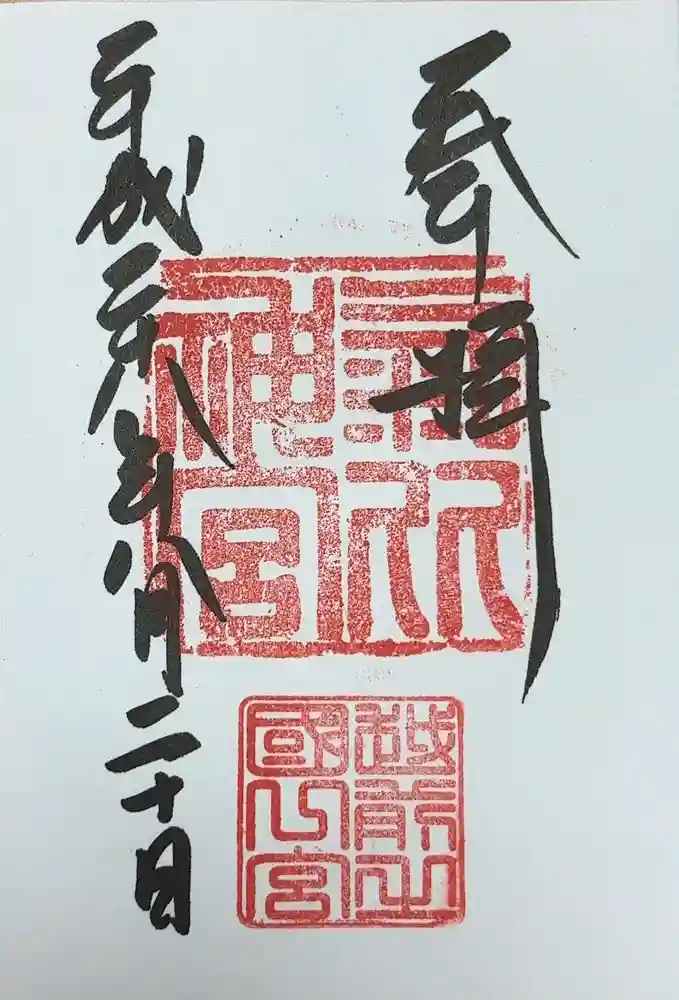 奉拝
氣比
神宮
越前
國宮
平成二十八年八月二十日